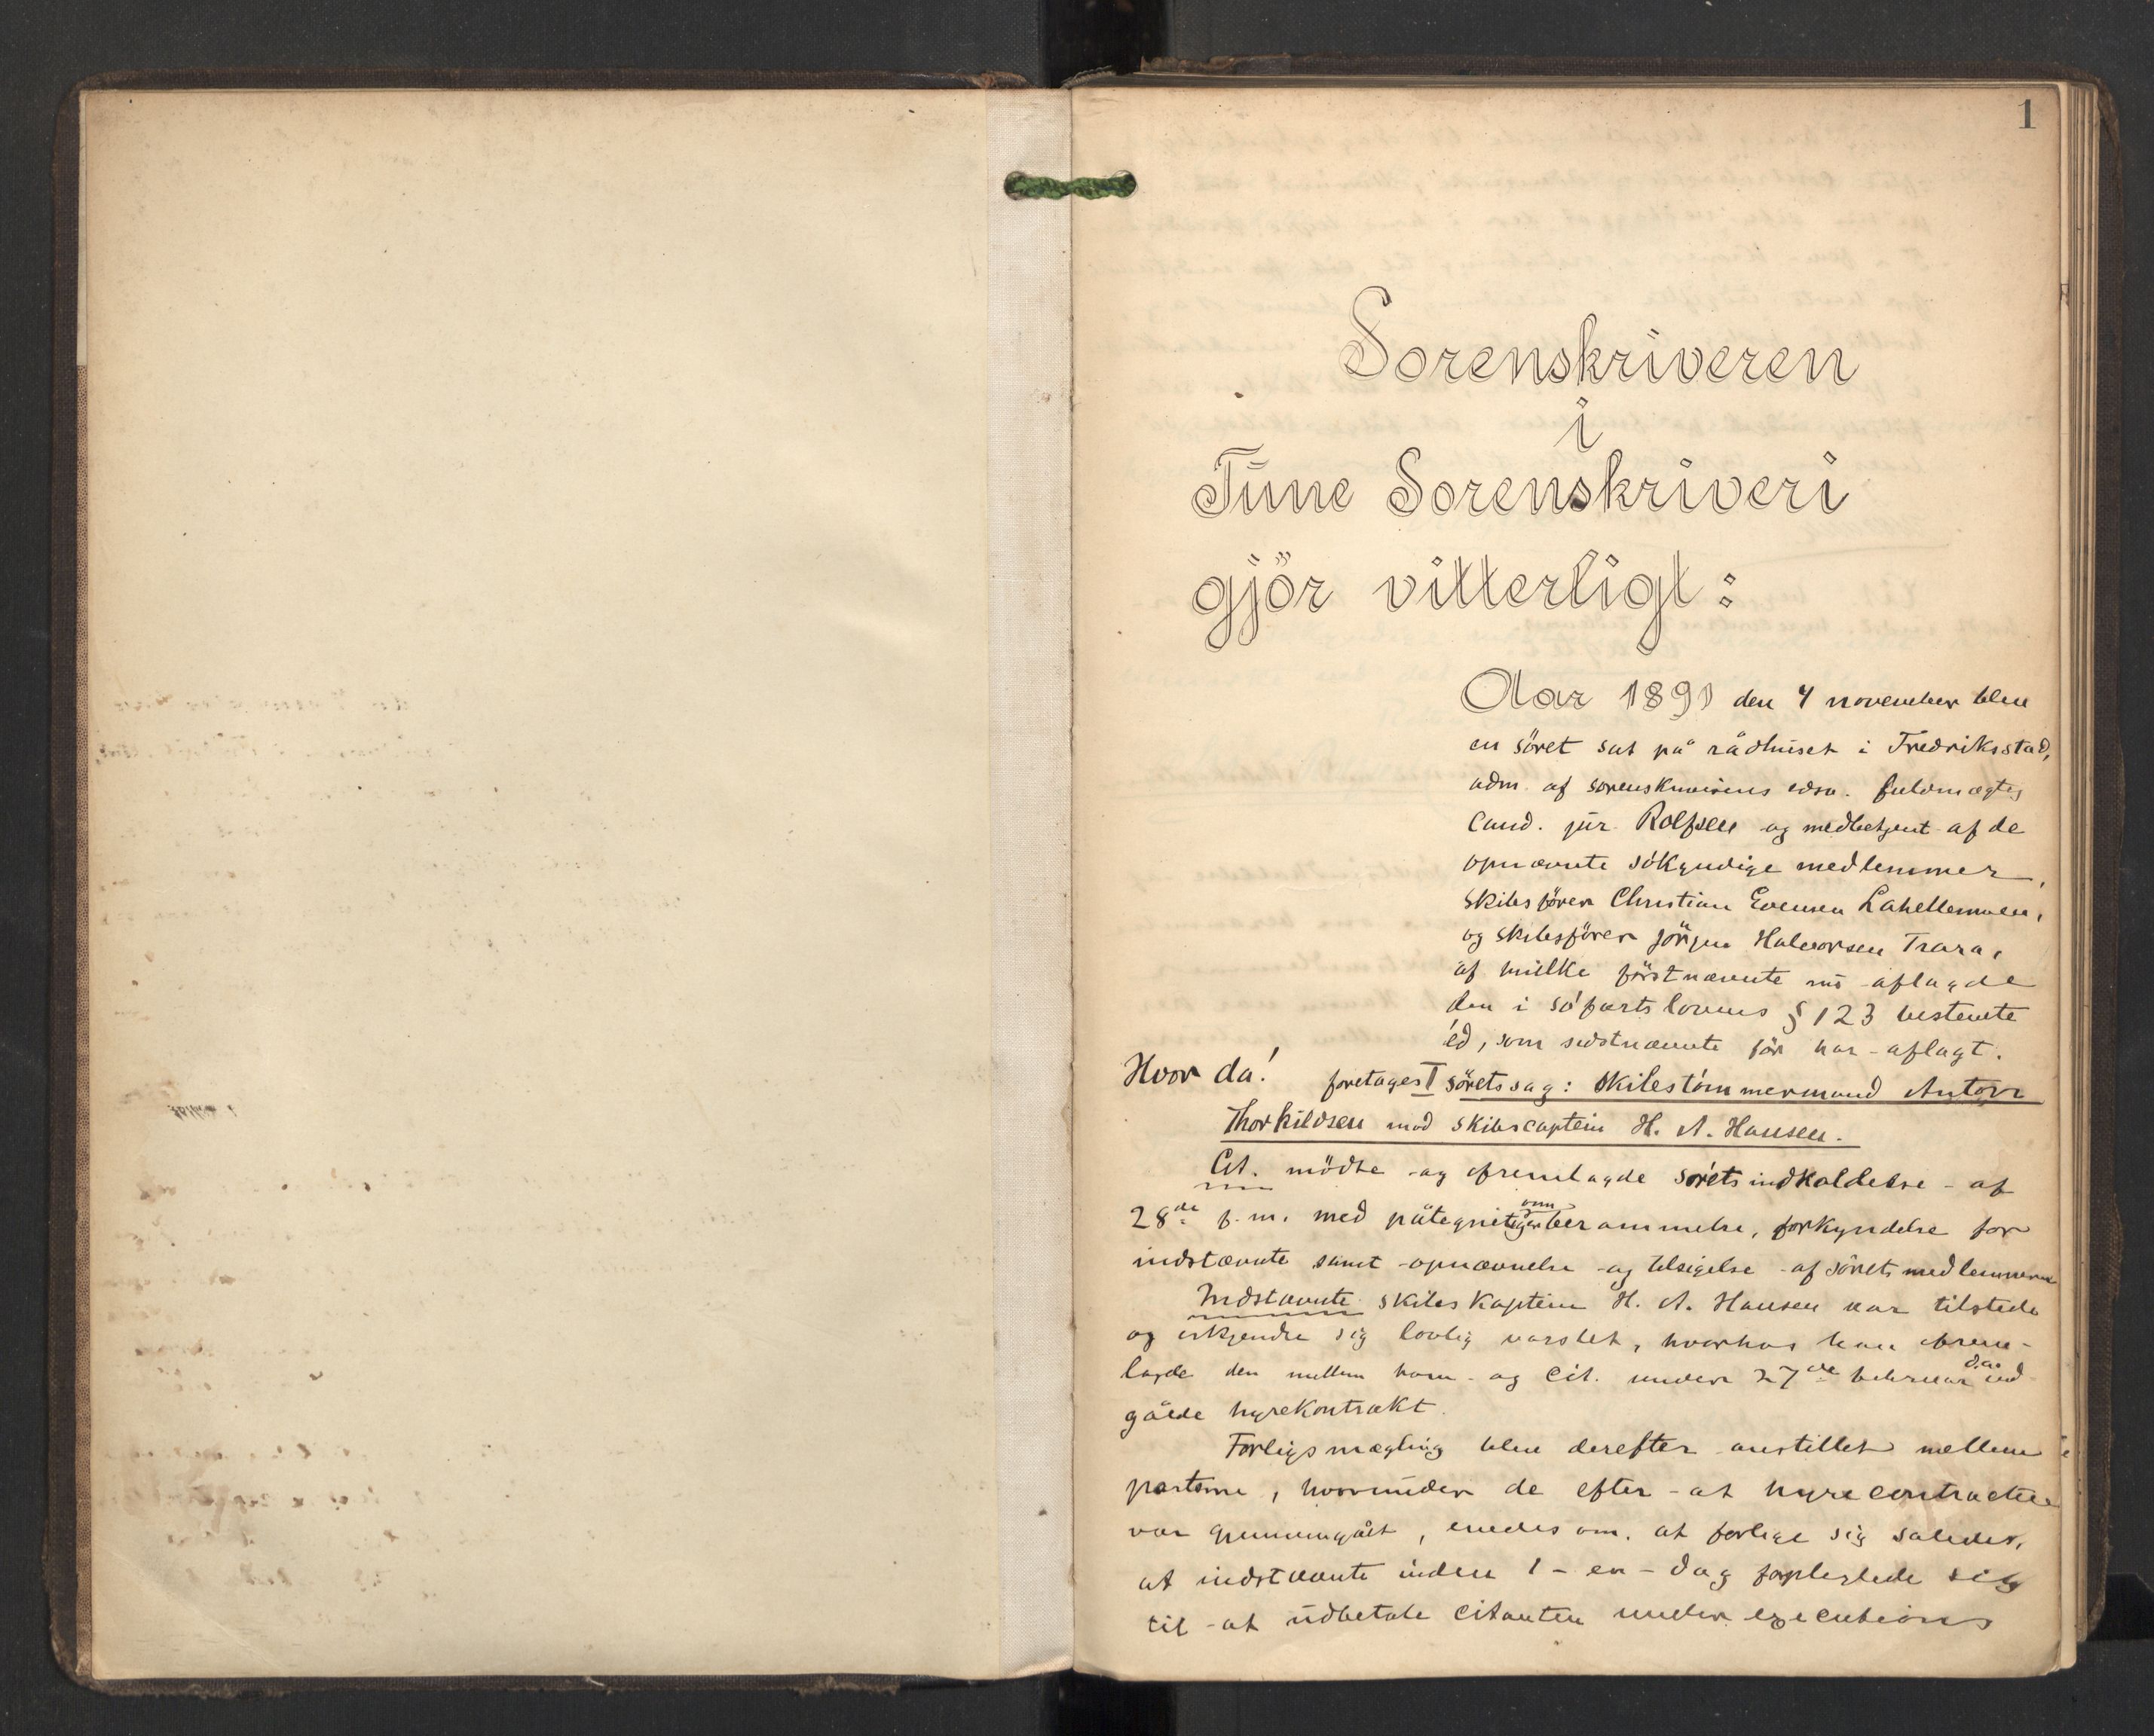 1
Sorenskriveren
i
Tune Sorenskriveri
gjör vitterligt:
Aar 1891 den 4 november blev
en söret sat på rådhuset i Fredriksstad,
adm. af sorenskriverens edsv. fuldmægtig
Cand. jur. Rolfsen og medbetjent af de
opnævnte sökyndige medlemmer,
skibsförer Christian Evensen Lahellemoen,
og skibsförer Jörgen Halvorsen Trara,
af hvilke förstnævnte nu aflagde
den i söfartslovens § 123 bestemte
éd, som sidstnævnte för har aflagt.
Hvor da! foretages I söretssag: skibstömmermand Anton
Thorkildsen mod skibscaptein H. A. Hansen.
Cit. mödte og fremlagde söretsindkaldelse af
28de f. m. med påtegninger om berammelse, forkyndelse for
indstævnte samt opnævnelse og tilsigelse af söretsmedlemmerne
Indstævnte skibskaptein H. A. Hansen var tilstede
og erkjendte sig lovlig varslet, hvorhos han frem-
lagde den mellem ham og Cit. under 27de februar d.a. ind-
gåede hyrekontrakt.
Forligsmægling blev derefter anstillet mellem
parterne, hvorunder de efter at hyrecontracten
var gjennemgået, enedes om at forlige sig således,
at indstævnte inden 1 - en - dag forpligtede sig
til at udbetale citanten under executions